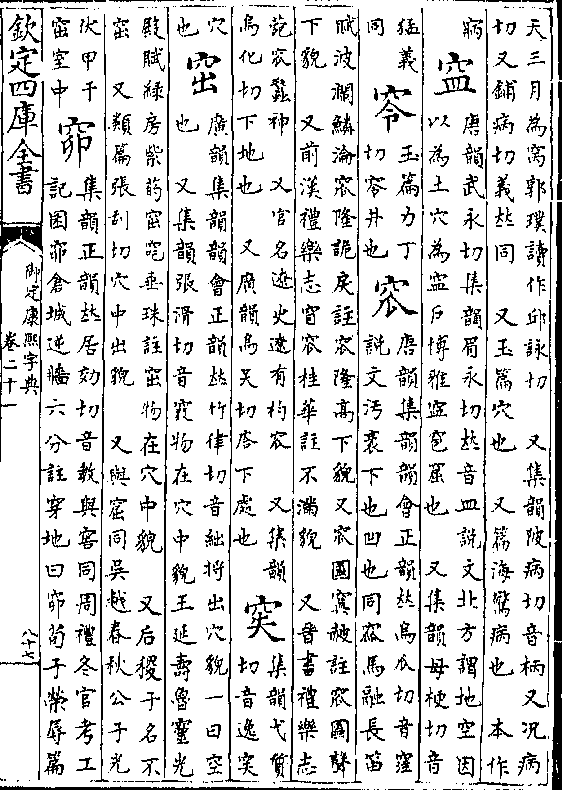 天三月為窝郭璞讀作邱詠切 又集韻陂病切音柄又况病
切又鋪病切義𠀤同 又玉篇穴也 又篇海驚病也 本作
病
唐韻武永切集韻眉永切𠀤音皿說文北方謂地空因
以為土穴為戶博雅窇窟也 又集韻母梗切音
猛義
同
玉篇力丁
切井也
窊
唐韻集韻韻會正韻𠀤烏瓜切音窪
說文污衺下也凹也同窳馬融長笛
賦波瀾鱗淪窊隆詭戾註窊隆高下貌又窊圔窴赦註窊圔聲
下貌 又前漢禮樂志窅窊桂華註不滿貌 又晉書禮樂志
苑窊蠶神 又官名遼史遼有杓窊 又集韻
烏化切下地也 又廣韻烏吴切唇下處也
集韻弋質
切音逸突
穴
也
窋
廣韻集韻韻會正韻𠀤竹律切音絀將出穴貌一曰空
也 又集韻張滑切音窡物在穴中貌王延壽魯靈光
殿賦綠房紫菂窋窀垂珠註窋物在穴中貌 又后稷子名不
窋 又類篇張刮切穴中出貌 又與窟同吳越春秋公子光
伏甲于
窋室中
窌
集韻正韻𠀤居効切音教與窖同周禮冬官考工
記囷窌倉城逆牆六分註穿地曰窌荀子榮辱篇
欽定四庫全書
御定康熙字典
卷二十一
八十七